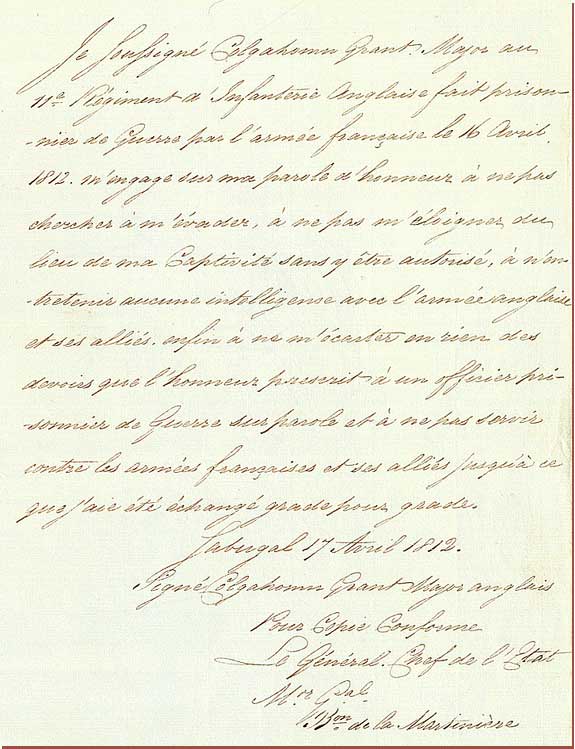 Je soussigné Colgahomn Grant Major au
11e Régiment d'Infanterie Anglaise fait prison-
-nier de Guerre par l'armée française le 16 Avril
1812. m'engage sur ma parole d'honneur à ne pas
chercher à m'évader, à ne pas m'éloigner du
lieu de ma Captivité sans y être autorisé, à n'en-
tretenir aucune intelligense avec l'armée anglaise
et ses alliés. enfin à ne m'écarter en rien des
devoirs que l'honneur prescrit à un officier pri-
-sonnier de Guerre sur parole et à ne pas servir
contre les armées françaises et ses alliés jusqu'à ce
que j'aie été échangé grade pour grade.
Sabugal 17 Avril 1812.
Signé, Colgahomn Grant Major anglais
Pour Copie Conforme
Le Général. Chef de l'Etat
Mor Gal
Bon de la Martinière